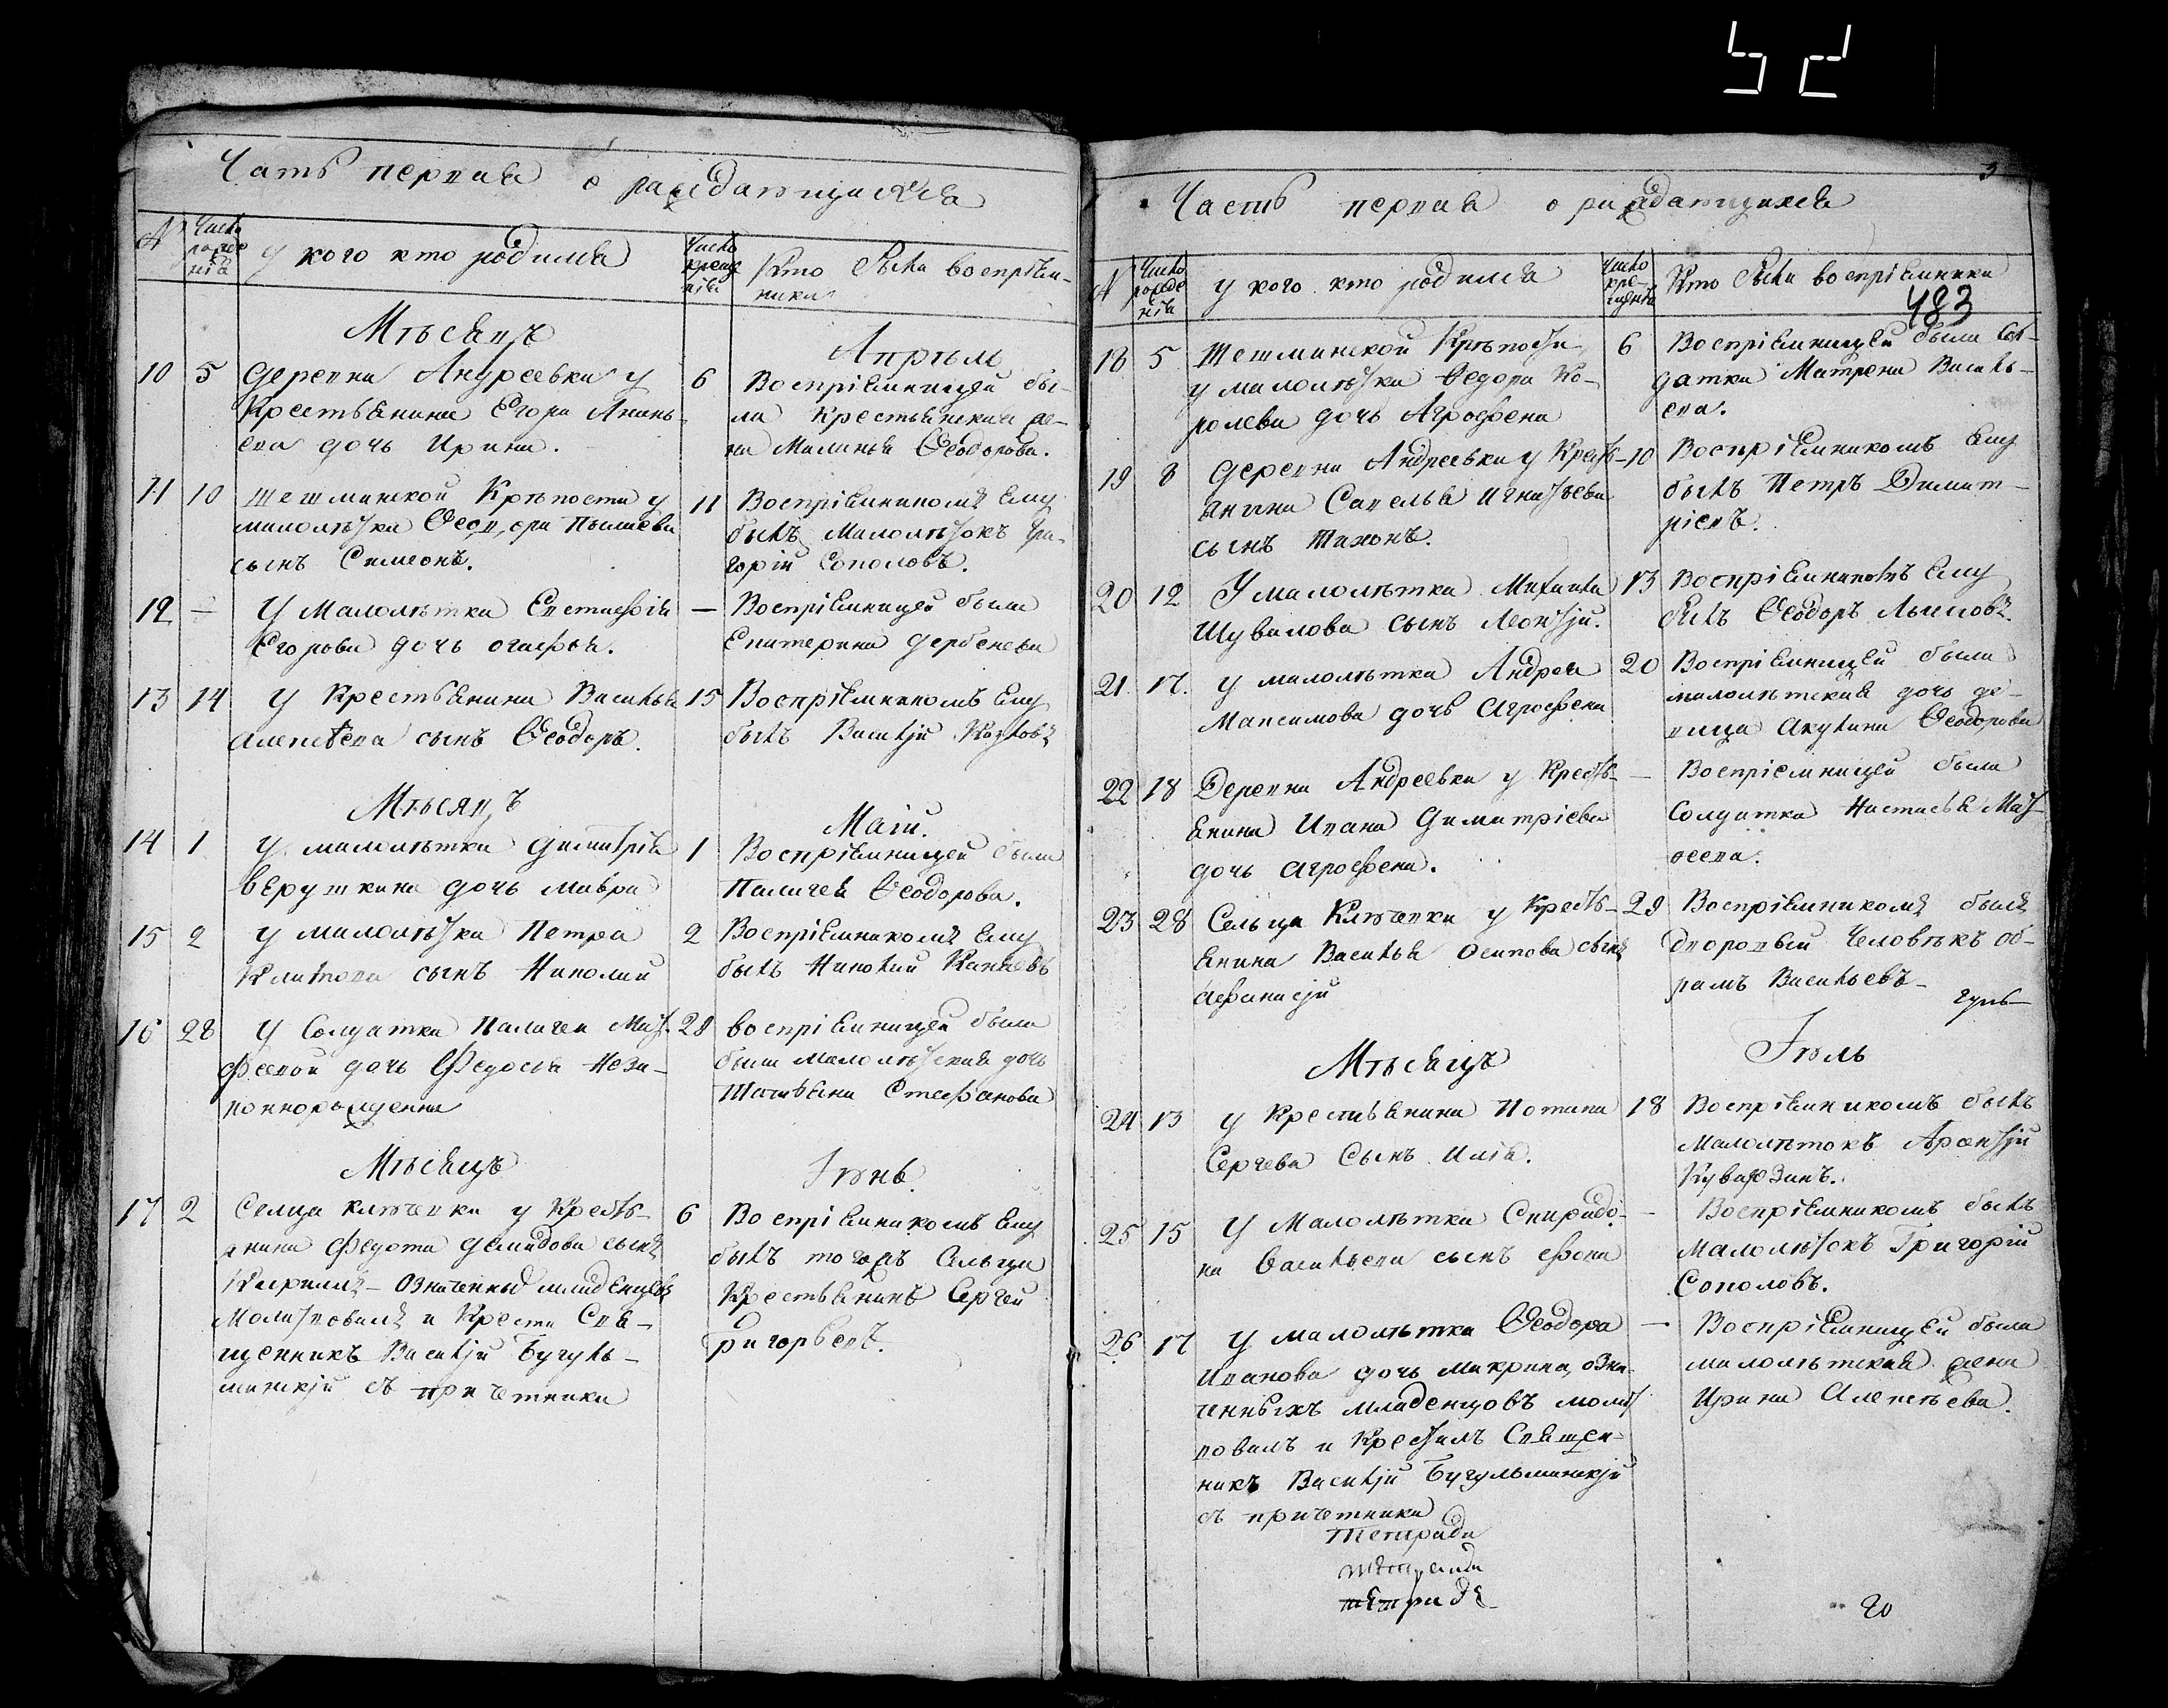 52
Часть первая о раждающихся
№
Число рожде нія
у кого кто родился
Число креще нія
Кто были воспріем-
ники
Мѣсяцъ
Апрѣль
10 5 деревни Андреевки у
Крестьянина Егора Анань-
ева дочь Ирина.
6 Воспріемницей бы-
ла крестьянская же-
на Маланья Ѳеодорова.
11 10 Шешминской Крѣпости у
малолѣтка Ѳеодора
сынъ Симеонъ.
11 Воспріемникомъ ему
былъ малолѣтокъ Гри-
горій Соколовъ.
12 — У Малолѣтка Евстафія
Егорова дочь Агафья.
— Воспріемницей была
Екатерина Дербенева
13 14 у Крестьянина Василья
Алексѣева сынъ Ѳеодоръ.
15 Воспріемникомъ ему
былъ Василій Козловъ
Мѣсяцъ
Маій.
14 1 у малолѣтка Димитрія
Верушкина дочь Мавра
1 Воспріемницей была
Палагея Ѳеодорова.
15 2 у малолѣтка Петра
сынъ Николай
2 Воспріемникомъ ему
былъ Николай
16 28 У Солдатки Палагеи Мат-
феевой дочь Ѳедосья Неза-
коннорожденна
28 воспріемницей была
была малолѣтская дочь
Татьяна Стефанова
Мѣсяцъ
Іюнь
17 2 Сельца Клѣтевки у Кресть-
янина Федота Демидова сынъ
Кирилъ — Означенныхъ младенцовъ
Молитвовалъ и Крести Свя-
щенникъ Василій Бугуль-
минскій съ причетники
6 Воспріемникомъ ему
былъ тогожъ Сельца
Крестьянинъ Сергей
Григорьевъ.
3
Часть первая о раждающихся
№
Число рожде нія
у кого кто родился
Число кре- щенія
Кто были воспріемники
483
18 5 Шешминской Крѣпости
у малолѣтка Ѳедора Ко-
ролева дочь Агрофена
6 Воспріемницей была Сол-
датка Матрена Василь-
ева.
19 8 деревни Андреевки у Крест-
янина Савелья Игнатьева
сынъ Тихонъ.
10 Воспріемникомъ ему
былъ Петръ Димит-
ріевъ.
20 12 У малолѣтка Михаила
Шувалова сынъ Леонтій.
13 Воспріемникомъ ему
былъ Ѳеодоръ
21 17. у малолѣтка Андрея
Максимова дочь Агрофена
20 Воспріемницей была
малолѣтская дочь дѣ-
вица Акулина Ѳеодорова
22 18 Деревни Андреевки у Кресть-
янина Ивана Димитріева
дочь Агрофена.
— Воспріемницей была
Солдатка Настасья Мат-
веева.
23 28 Сельца Клѣтевки у Кресть-
янина Василья Осипова сынъ
Афанасій
29 Воспріемникомъ былъ
дворовый человѣкъ Об-
рамъ Васильевъ
Мѣсяцъ
Іюль
24 13 у Крестьянина Потапа
Сергева Сынъ Илія.
18 Воспріемникомъ былъ
Малолѣтокъ
25 15 У Малолѣтка Спиридо-
на Васильева сынъ
— Воспріемникомъ былъ
Малолѣтокъ Григорій
Соколовъ.
26 17 У малолѣтка Ѳеодора
Иванова дочь Макрина, озна-
ченныхъ младенцовъ молит
вовалъ и Крестилъ Священ-
никъ Василій Бугульминскій
съ причетники
— Воспріемницей была
малолѣтская жена
Ирина Алексѣева.
Тетради
20